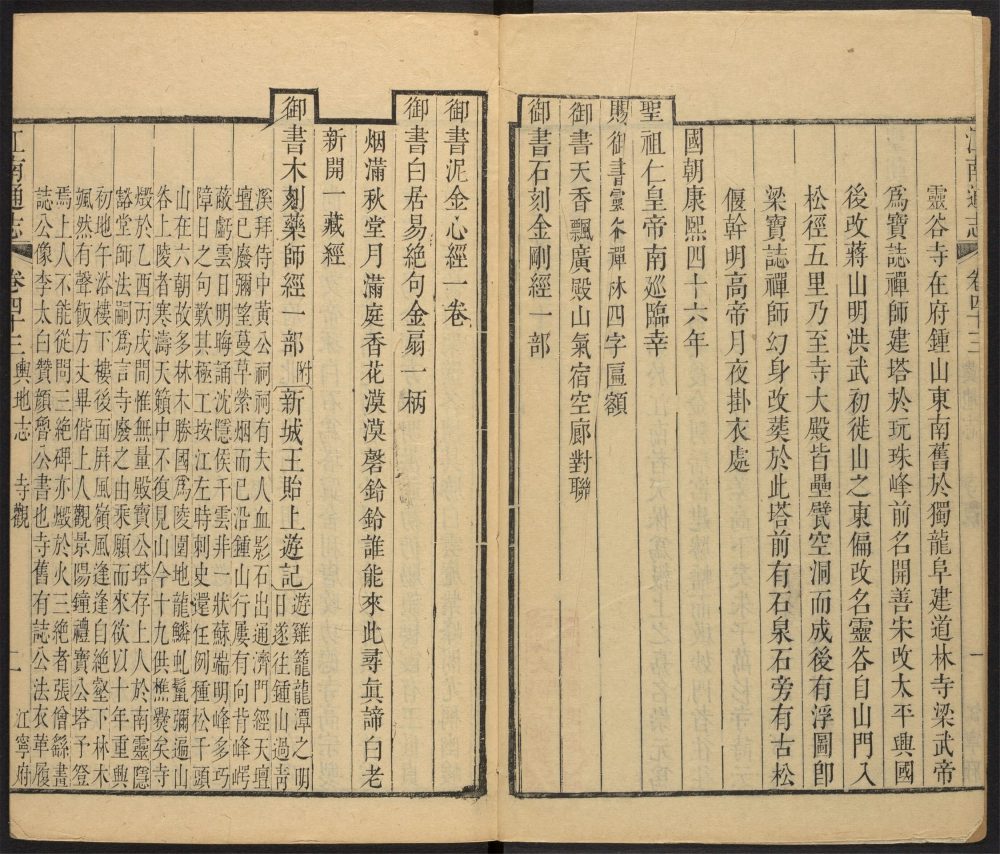 江南通志 卷四十三 一
靈谷寺在府鍾山東南舊於獨龍阜建道林寺梁武帝
爲寶誌禪師建塔於玩珠峰前名開善宋改太平興國
後改蔣山明洪武初徙山之東偏改名靈谷自山門入
松徑五里乃至寺大殿皆壘甓空洞而成後有浮圖卽
梁寶誌禪師幻身改葬於此塔前有石泉石旁有古松
偃幹明高帝月夜掛衣處
國朝康熙四十六年
聖祖仁皇帝南巡臨幸
賜御書靈谷禪林四字匾額
御書天香飄廣殿山氣宿空廊對聯
御書石刻金剛經一部
御書泥金心經一卷
御書白居易絕句金扇一柄
烟滿秋堂月滿庭香花漠漠磬鈴鈴誰能來此尋眞諦白老
新開一藏經
御書木刻藥師經一部附新城王貽上遊記遊雞籠龍潭之明
日遂往鍾山過靑
溪拜侍中黃公祠祠有夫人血影石出通濟門經天壇
壇已廢彌望蔓草縈烟而已沿鍾山行屢有向背峰崿
蔽虧雲日明晦誦沈隱侯千雲非一狀蘇端明峰多巧
障日之句歎其極工按江左時刺史還任例種松千頭
山在六朝故多林木勝國爲陵園地龍鱗虬鬣彌遍山
谷上陵者寒濤天籟中不復見山今十九供樵爨矣寺
燬於乙酉丙戌間惟無量殿寶公塔存上人於南靈隱
豁堂師法嗣爲言寺廢之由乘願而來欲以十年重興
初地午浴樓下樓後面屛風嶺風逢逢自絕壑下林木
颯然有聲飯方丈畢偕上人觀景陽鐘禮寶公塔予登
焉上人不能從問三絕碑亦燬於火三絕者張僧繇畫
誌公像李太白贊顏魯公書也寺舊有誌公法衣革履
江南通志 卷四十三 輿地志 寺觀 二 江寧府